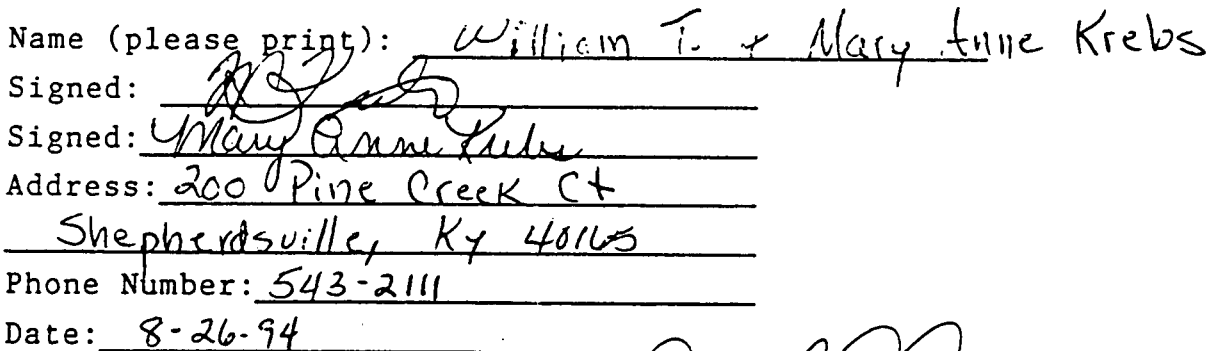 Name (please print): William T. + Mary Anne Krebs
Signed:
Signed: Mary Anne Krebs
Address: 200 Pine Creek Ct
Shepherdsville, Ky 40165
Phone Number: 543-2111
Date: 8-26-94